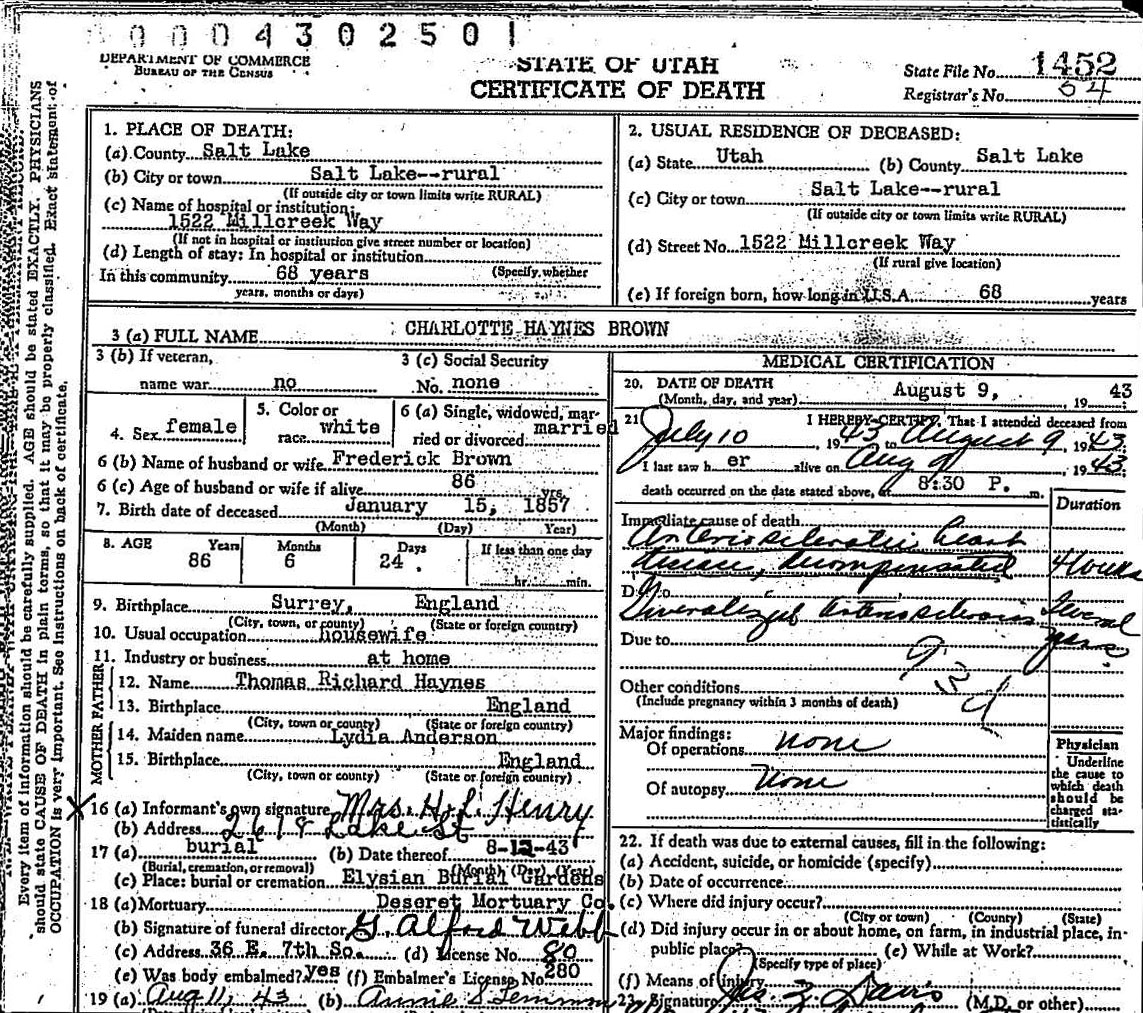 0004302501
DEPARTMENT OF COMMERCE
BUREAU OF THE CENSUS
STATE OF UTAH
CERTIFICATE OF DEATH
State File No. 1452
Registrar's No. 54
Every item of information should be carefully supplied. AGE should be stated EXACTLY. PHYSICIANS
should state CAUSE OF DEATH in plain terms, so that it may be properly classified. Exact statement of
OCCUPATION is very important. See instructions on back of certificate.
1. PLACE OF DEATH:
(a) County Salt Lake
(b) City or town Salt Lake--rural
(If outside city or town limits write RURAL)
(c) Name of hospital or institution:
1522 Millcreek Way
(If not in hospital or institution give street number or location)
(d) Length of stay: In hospital or institution
In this community 68 years (Specify whether
years, months or days)
2. USUAL RESIDENCE OF DECEASED:
(a) State Utah (b) County Salt Lake
(c) City or town Salt Lake--rural
(If outside city or town limits write RURAL)
(d) Street No. 1522 Millcreek Way
(If rural give location)
(e) If foreign born, how long in U.S.A. 68 years
3 (a) FULL NAME CHARLOTTE HAYNES BROWN
3 (b) If veteran, 3 (c) Social Security
name war no No. none
4. Sex female 5. Color or race white 6 (a) Single, widowed, married or divorced married
6 (b) Name of husband or wife Frederick Brown
6 (c) Age of husband or wife if alive 86 yrs.
7. Birth date of deceased January 15, 1857
(Month) (Day) Year)
8. AGE Years Months Days If less than one day
86 6 24 hr. min.
9. Birthplace Surrey, England
(City, town, or county) (State or foreign country)
10. Usual occupation housewife
11. Industry or business at home
FATHER
12. Name Thomas Richard Haynes
13. Birthplace England
(City, town or county) (State or foreign country)
MOTHER
14. Maiden name Lydia Anderson
15. Birthplace England
(City, town or county) (State or foreign country)
X 16 (a) Informant's own signature Mrs. H. L. Henry
(b) Address 2618 Lake St
17 (a) burial (b) Date thereof 8-12-43
(Burial, cremation, or removal) (Month) (Day) (Year)
(c) Place: burial or cremation Elysian Burial Gardens
18 (a) Mortuary Deseret Mortuary Co.
(b) Signature of funeral director G. Alford Webb
(c) Address 36 E. 7th So. (d) License No. 80
(e) Was body embalmed? yes (f) Embalmer's License No. 280
19 (a) Aug 11, 43 (b) Annie S.
MEDICAL CERTIFICATION
20. DATE OF DEATH August 9, 19 43
(Month, day, and year)
21 I HEREBY CERTIFY, That I attended deceased from
July 10, 1943 to August 9, 1943
I last saw h er alive on Aug 9 1943
death occurred on the date stated above, at 8:30 P. m.
Duration
Immediate cause of death
Arteriosclerotic heart
disease, decompensated 4 weeks
Due to
Generalized arteriosclerosis Several
years
Due to
Other conditions
(Include pregnancy within 3 months of death)
Major findings:
Of operations none
Of autopsy none
Physician
Underline
the cause to
which death
should be
charged sta-
tistically
22. If death was due to external causes, fill in the following:
(a) Accident, suicide, or homicide (specify)
(b) Date of occurrence
(c) Where did injury occur?
(City or town) (County) (State)
(d) Did injury occur in or about home, on farm, in industrial place, in-
public place? (e) While at Work?
(Specify type of place)
(f) Means of injury
23. Signature Jas. Z. Davis (M.D. or other)